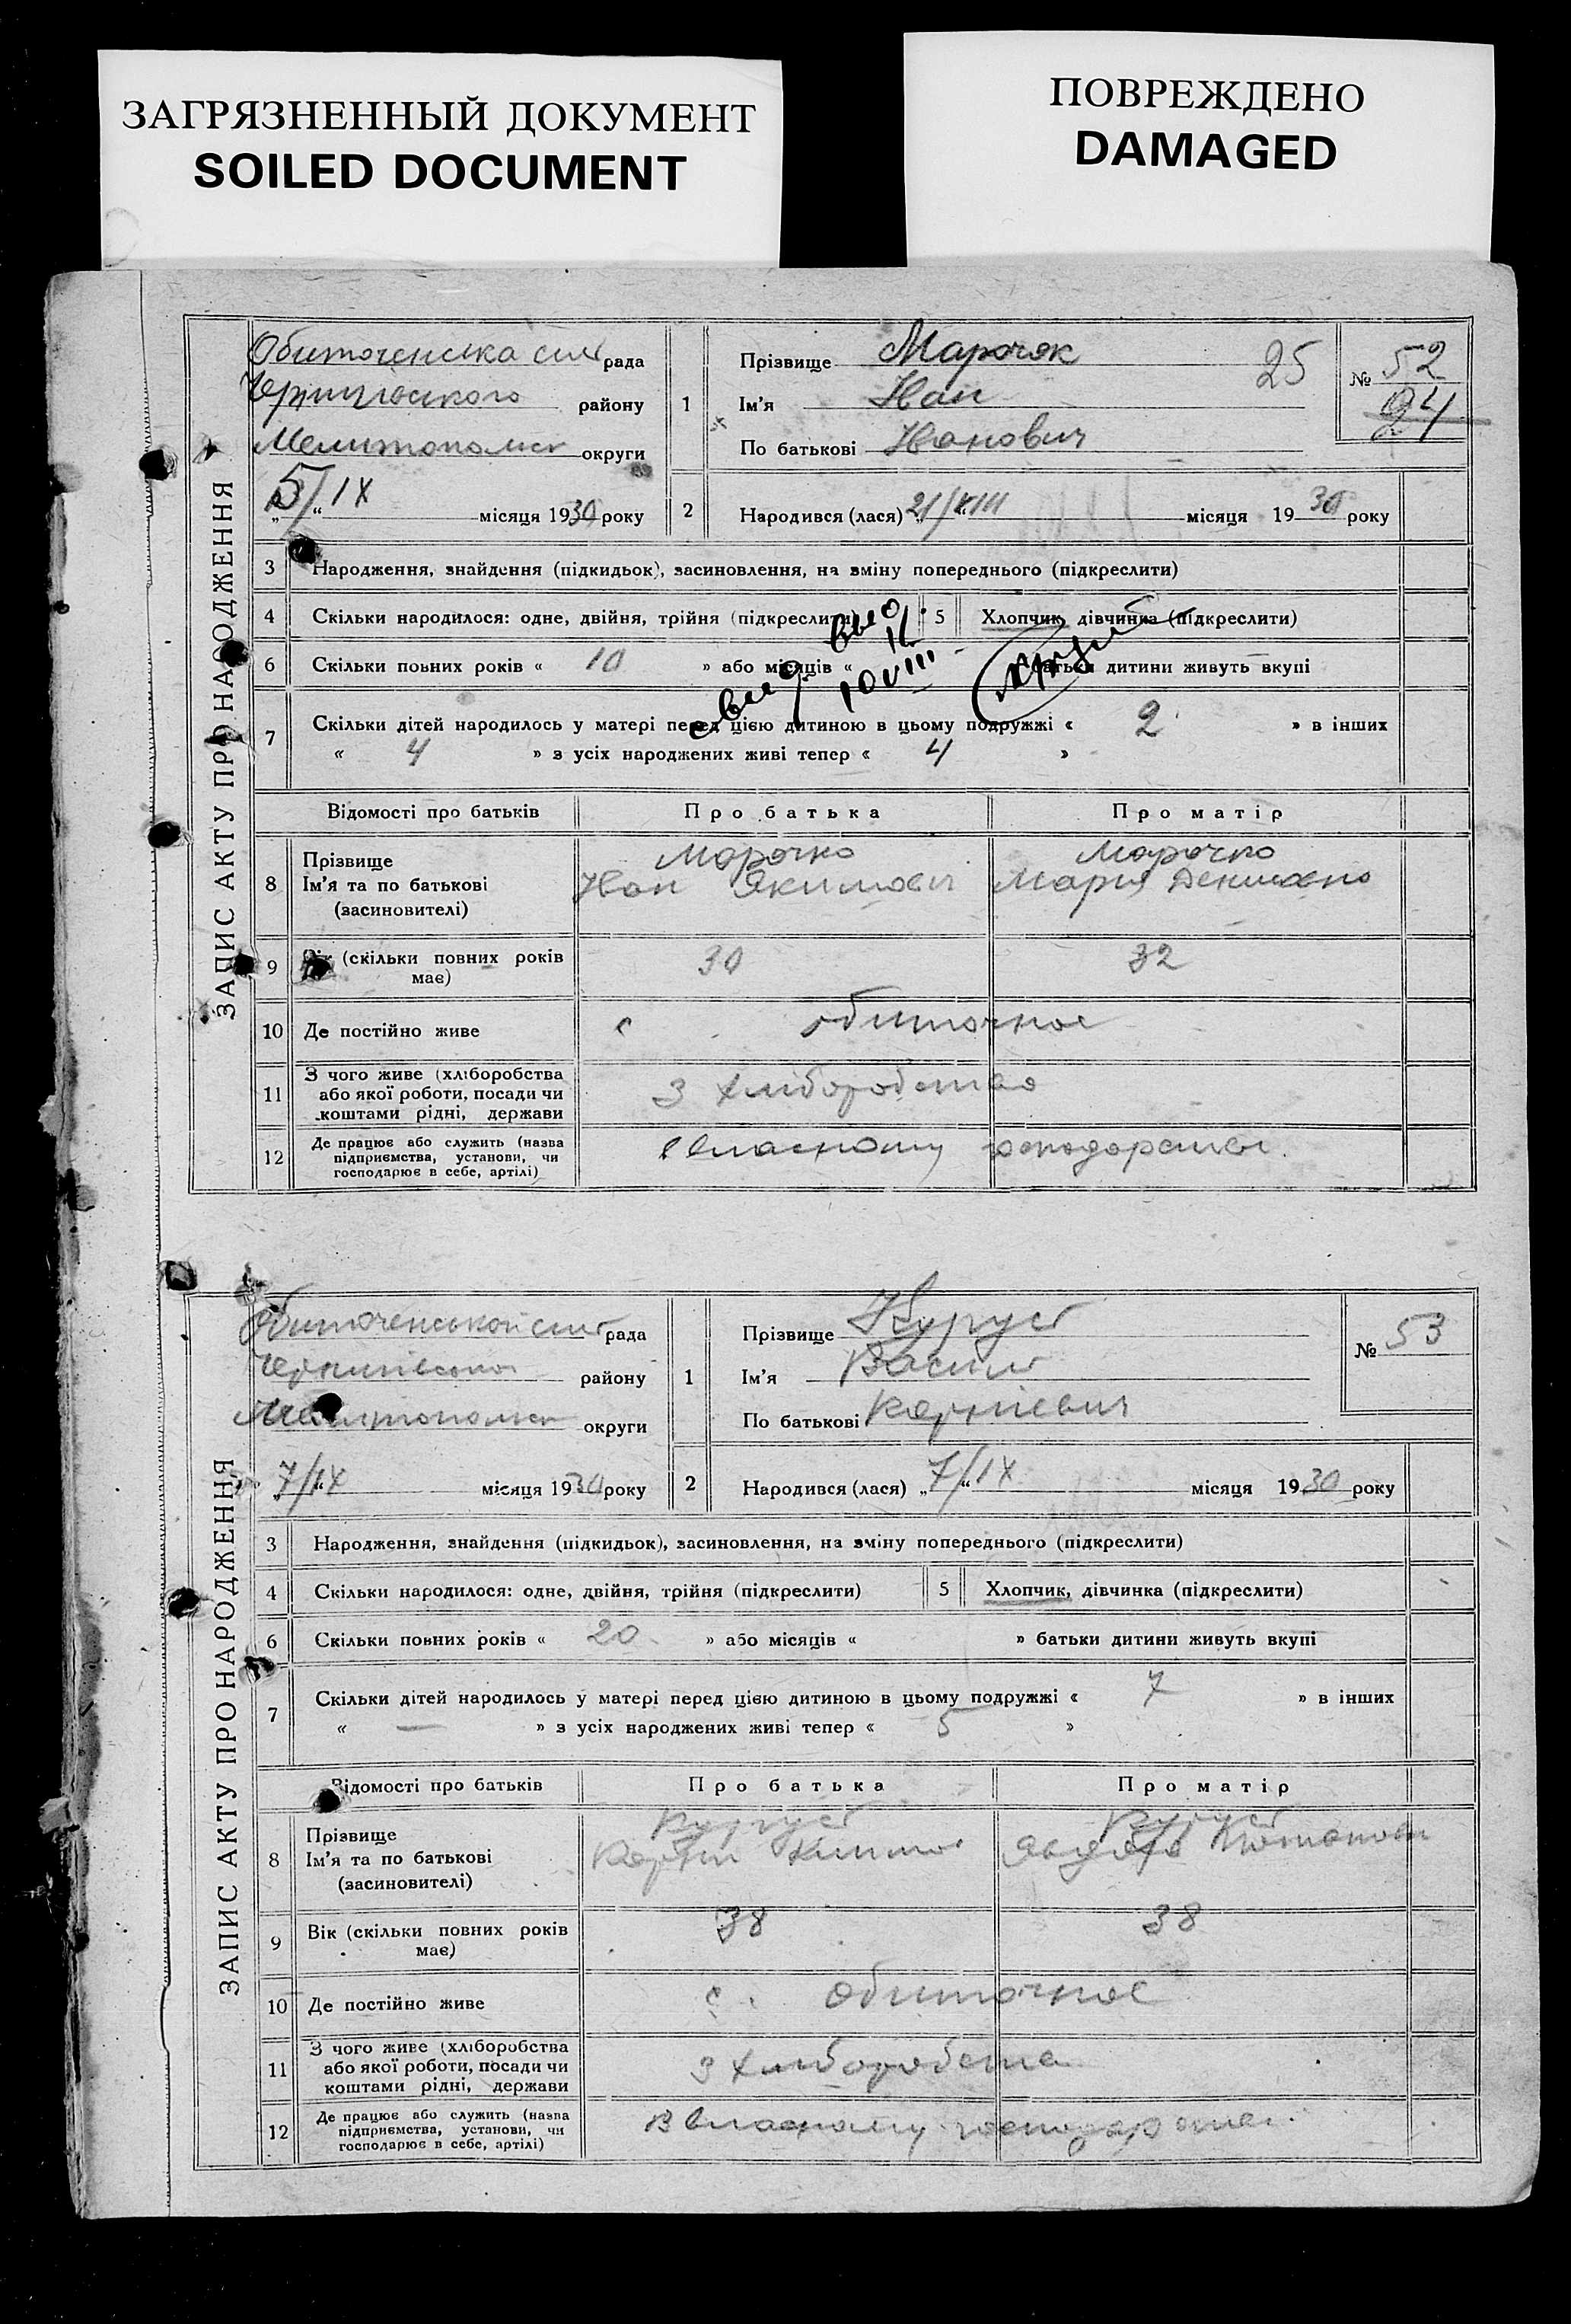 ЗАГРЯЗНЕННЫЙ ДОКУМЕНТ
SOILED DOCUMENT
ПОВРЕЖДЕНО
DAMAGED
ЗАПИС АКТУ ПРО НАРОДЖЕННЯ
рада
району
Мелитопольск округи
5/IX місяця 1930 року
1 Прізвище Марочок 25
Ім'я Иван
По батькові Иванович
№ 52
24
2 Народився (лася) 21/VIII місяця 1930 року
3 Народження, знайдення (підкидьок), засиновлення, на зміну попереднього (підкреслити)
4 Скільки народилося: одне, двійня, трійня (підкреслити) 5 Хлопчик, дівчинка (підкреслити)
6 Скільки повних років « 10 » або місяців « батьки дитини живуть вкупі
7 Скільки дітей народилось у матері перед цією дитиною в цьому подружжі « 2 » в інших
« 4 » з усіх народжених живі тепер « 4 »
Відомості про батьків Про батька Про матір
8 Прізвище Марочко Марочко
Ім'я та по батькові Иван Якимович Мария
(засиновителі)
9 Вік (скільки повних років має) 30 32
10 Де постійно живе с. обиточное
11 З чого живе (хліборобства або якої роботи, посади чи коштами рідні, держави з хліборобства
12 Де працює або служить (назва підприємства, установи, чи господарює в себе, артілі) в власному господарстві.
ЗАПИС АКТУ ПРО НАРОДЖЕННЯ
рада
району
округи
7/IX місяця 1930 року
1 Прізвище
Ім'я
По батькові
№ 53
2 Народився (лася) „7/IX місяця 1930 року
3 Народження, знайдення (підкидьок), засиновлення, на зміну попереднього (підкреслити)
4 Скільки народилося: одне, двійня, трійня (підкреслити) 5 Хлопчик, дівчинка (підкреслити)
6 Скільки повних років « 20 » або місяців « » батьки дитини живуть вкупі
7 Скільки дітей народилось у матері перед цією дитиною в цьому подружжі « 7 » в інших
« — » з усіх народжених живі тепер « 5 »
Відомості про батьків Про батька Про матір
8 Прізвище
Ім'я та по батькові
(засиновителі)
9 Вік (скільки повних років має) 38 38
10 Де постійно живе с. обиточное
11 З чого живе (хліборобства або якої роботи, посади чи коштами рідні, держави з хліборобства
12 Де працює або служить (назва підприємства, установи, чи господарює в себе, артілі) в власному господарстві.